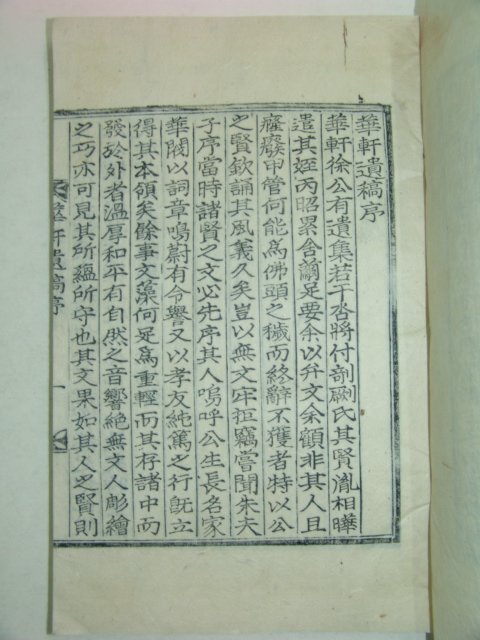 華軒遺稿序
華軒徐公有遺集若干沓將付剞劂氏其賢胤相曄
遣其姪丙昭累舍繭足要余以弁文余顧非其人且
癃癈甲管何能爲佛頭之穢而終辭不獲者特以公
之賢欽誦其風義久矣豈以無文牢拒竊嘗聞朱夫
子序當時諸賢之文必先序其人嗚呼公生長名家
華閥以詞章鳴蔚有令譽又以孝友純篤之行旣立
得其本領矣餘事文藻何足爲重輕而其存諸中而
發於外者溫厚和平有自然之音響絶無文人彫繪
之巧亦可見其所蘊所守也其文果如其人之賢則
華軒遺稿序
一